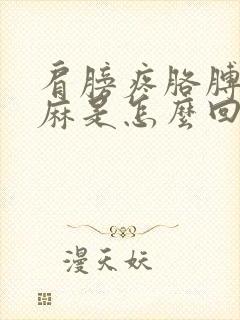 肩膀疼胳膊
麻是怎麼回
漫天妖